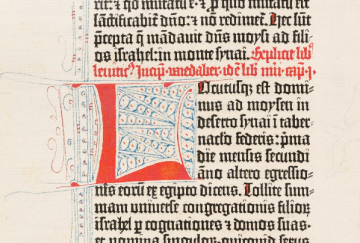 rit: ⁊ qd̛ mutatū ē· ⁊ p quo mutatū est
sāctificabit̛ dn̄o: ⁊ nō redimet̛. Hec sūt
p̄cepta q̄ mādauit dn̄s moysi ad fili-
os israhel: in monte synai. Explicit lib̛
leuitic⁹. Incip̄.
Locutusq; est domi-
nus ad moysen in
deserto synai ī taber-
naculo federis: p̄ma
die mensis secundi
āno altero egressio-
nis eorū ex egipto dicens. Tollite sum-
mam vniuerse congregationis filiorꝝ
israhel p cognationes ⁊ domos suas·
et nomina singulorꝝ· quicquid sexus